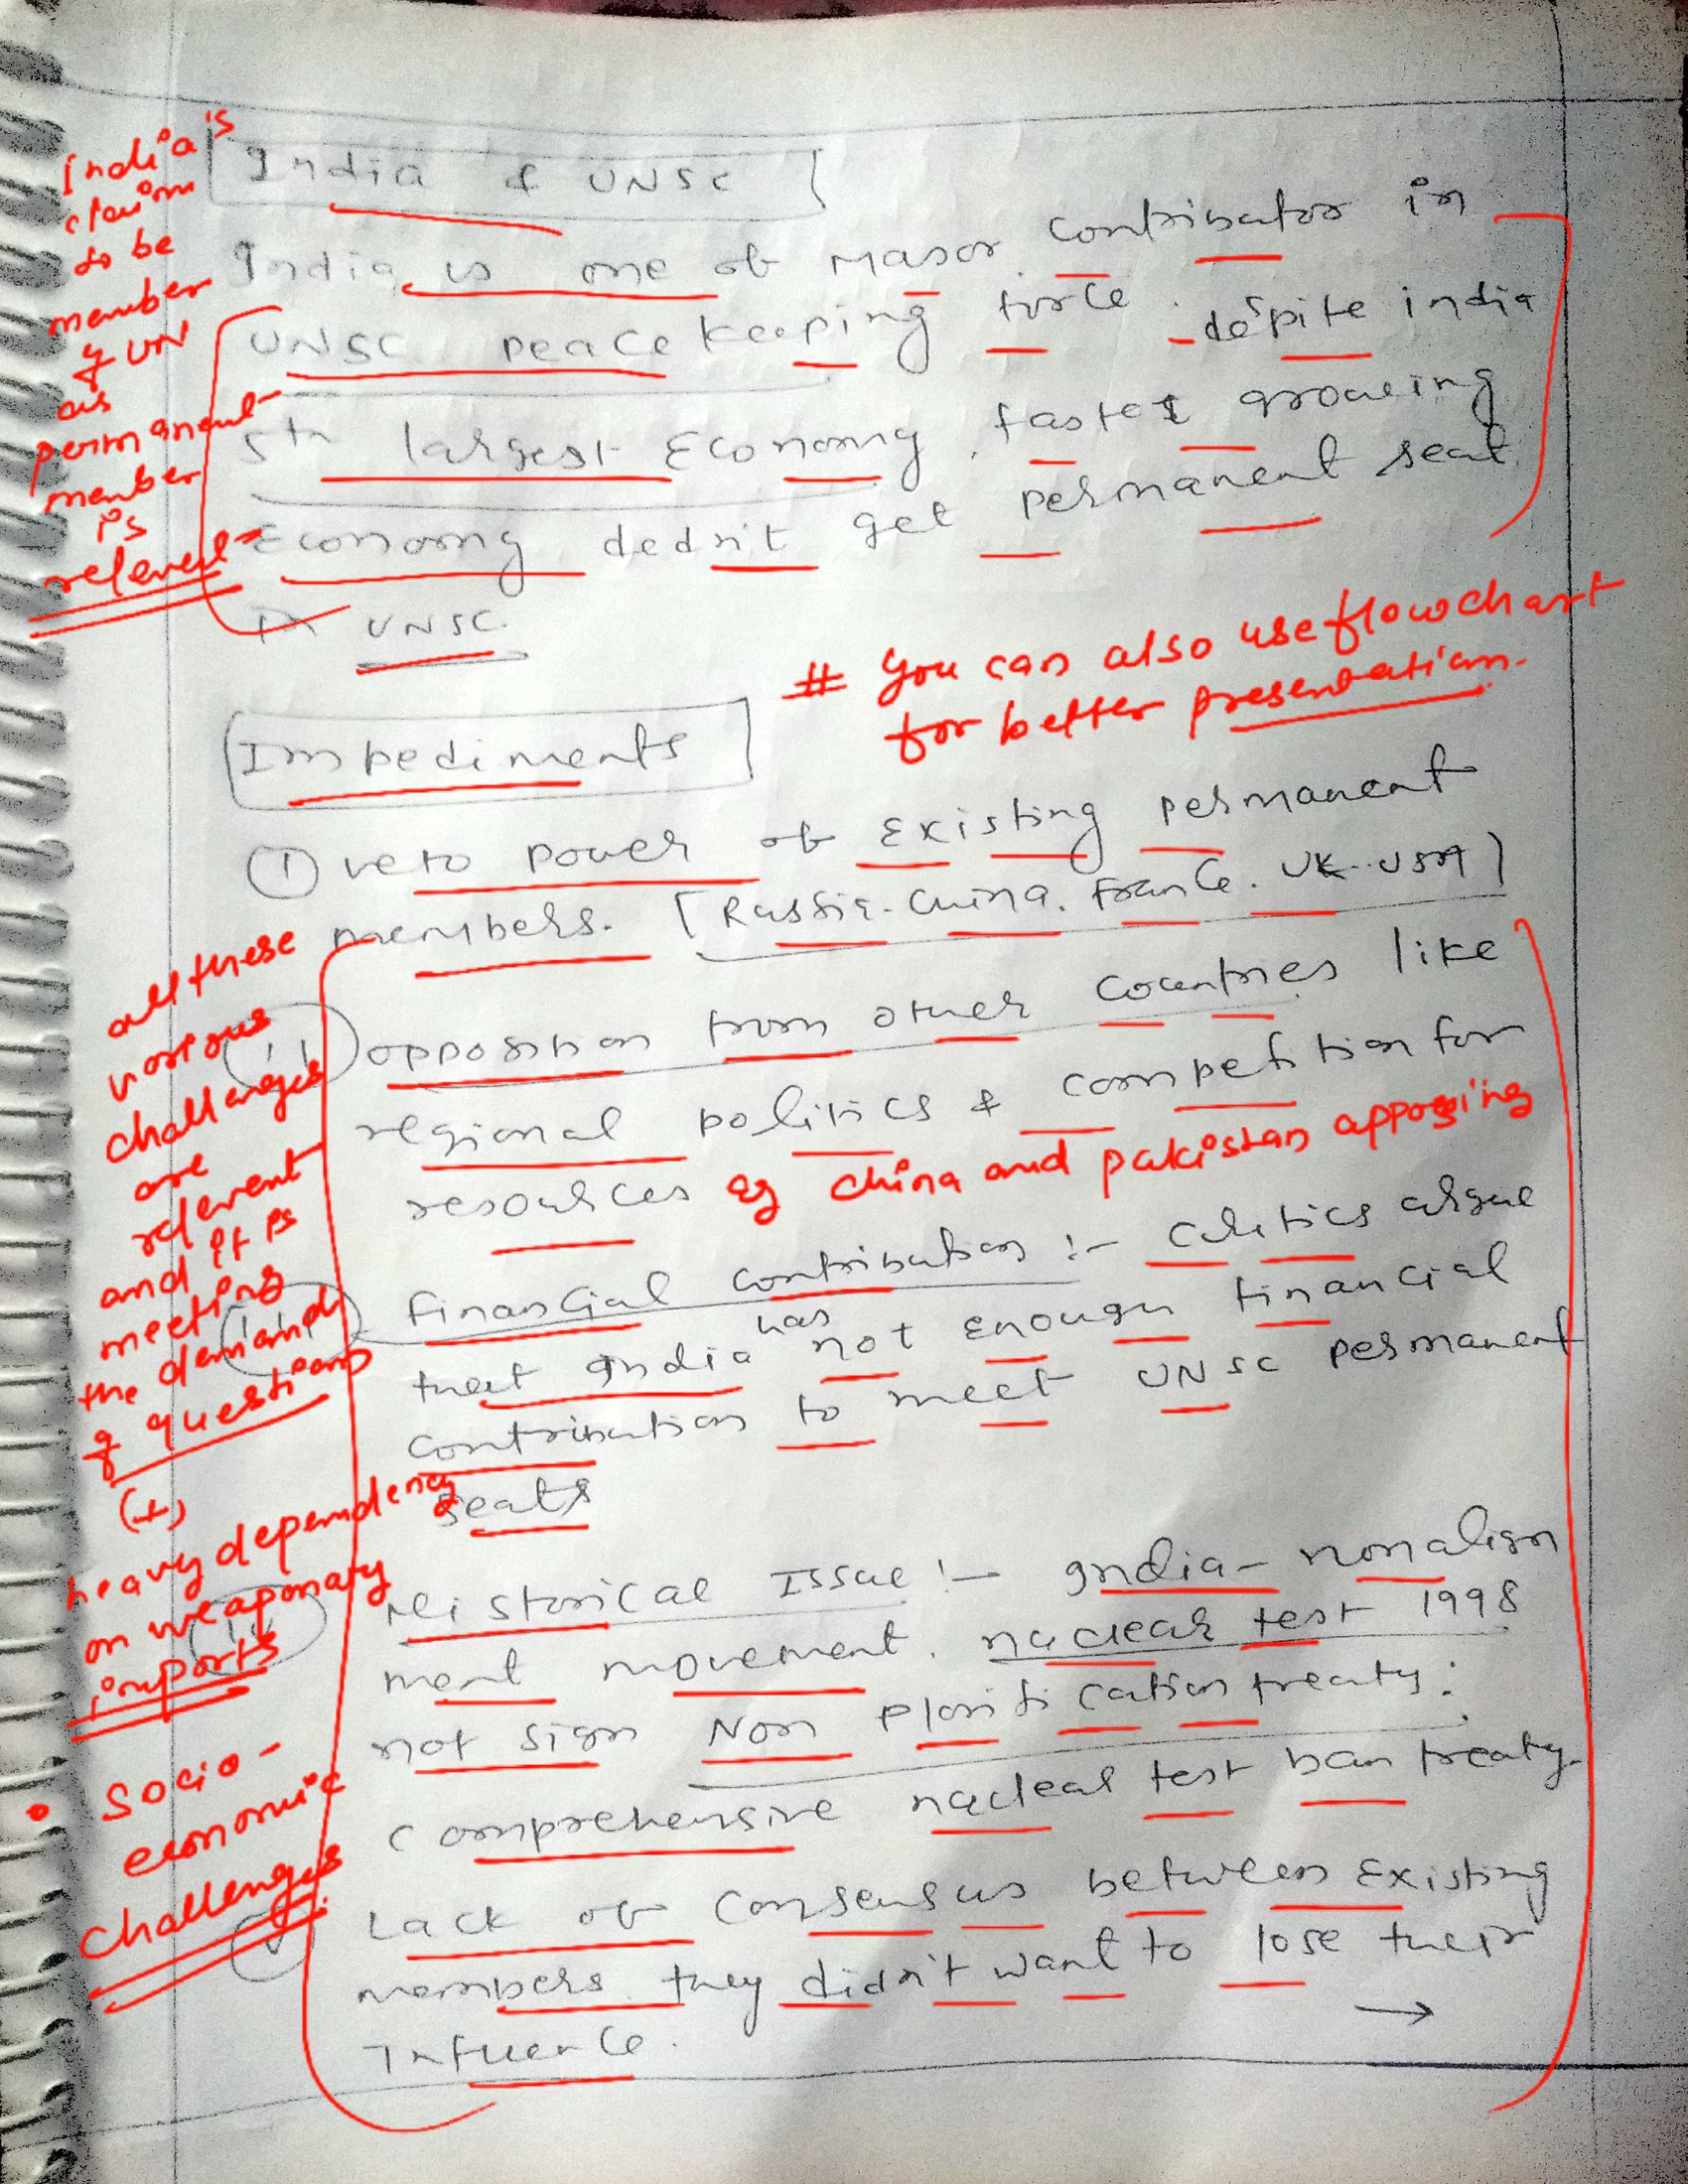 India & UNSC
India is one of Major contributor in
UNSC peace keeping force . despite india
5th largest Economy , fastest groweing
Economy dedn't get permanent seat
in UNSC.
India's
claim
to be
member
of UN
as
permanent
member
is
relevent
# You can also use flowchart
for better presentation.
Impediments
① veto power of Existing permanent
members. [Russia. China. France. UK. USA]
(ii) opposition from other countries like
regional politics & competition for
resources eg china and pakistan apposing
(iii) Financial contribution :- critics argue
that India has not enough financial
contribution to meet UNSC permanent
seats
(iv) Historical Issue :- India - nonalign
ment movement. nuclear test 1998
not sign Non plorification treaty:
comprehensive nuclear test ban treaty.
(v) Lack of consensus between Existing
members. they didn't want to lose their
Influence.
→
all these
various
challenges
are
relevent
and it is
meeting
the demand
of questions
(+)
heavy dependency
on weaponary
imports
• Socio-
economic
challenges